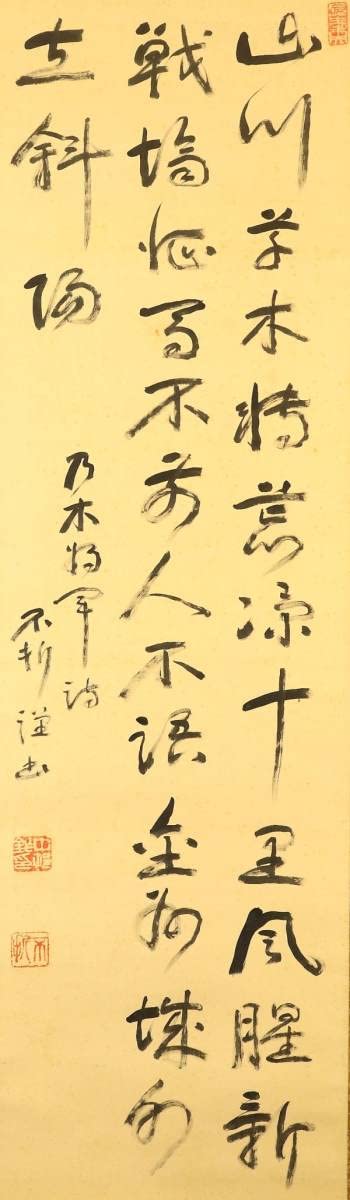 山川草木轉荒涼十里風腥新
戰場征馬不前人不語金州城外
立斜陽
乃木将軍詩
不折謹書